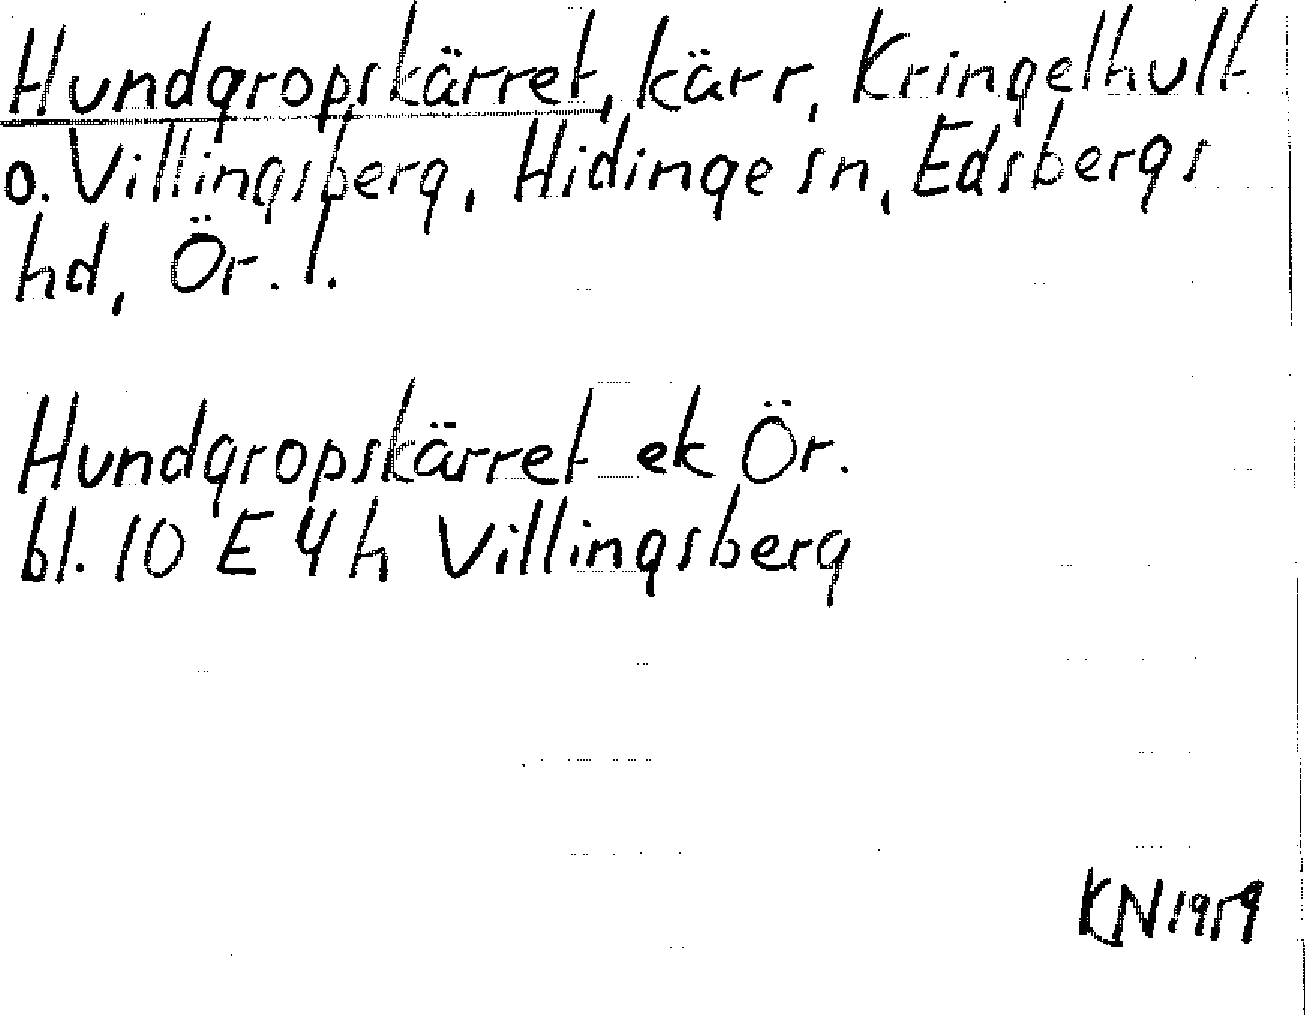 Hundgropskärret, kärr, Kringelhult
o. Villingsberg, Hidinge sn, Edsbergs
hd, Ör. l.
Hundgropskärret ek Ör.
bl. 10 E 4 h Villingsberg
KN 1959